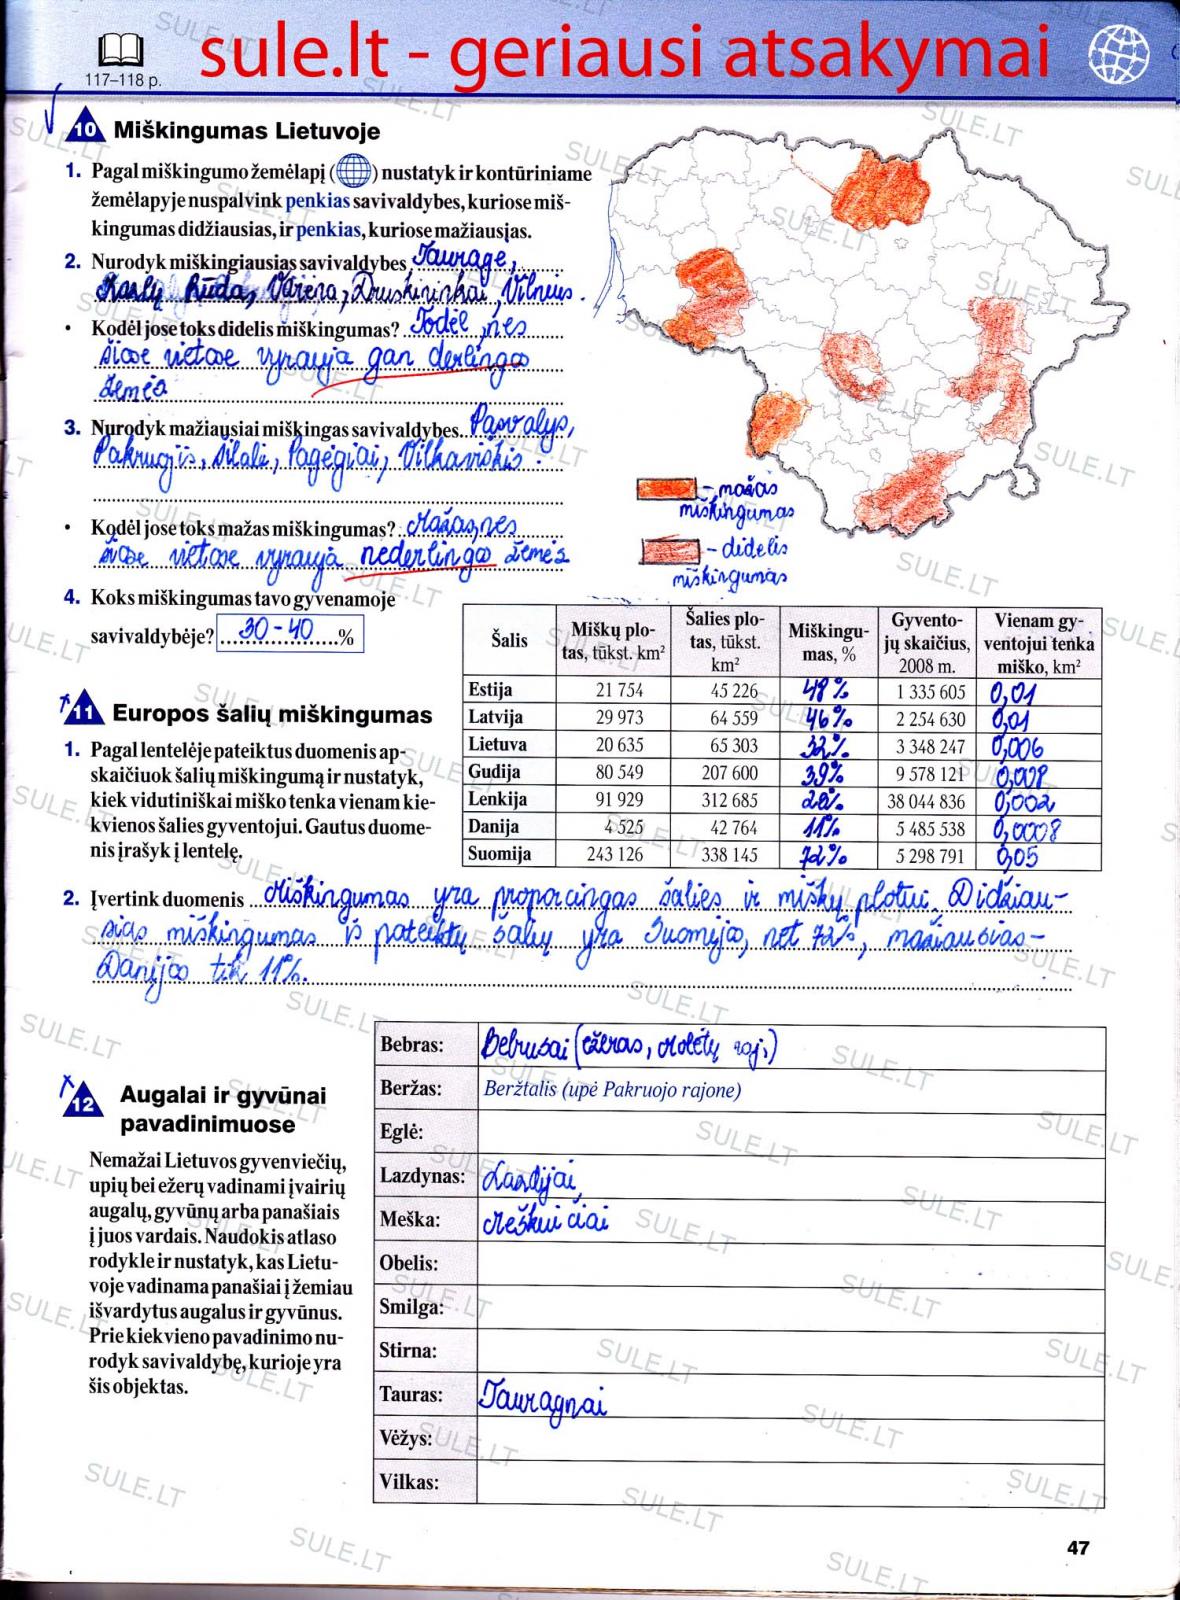 sule.lt - geriausi atsakymai
117–118 p.
10 Miškingumas Lietuvoje
1. Pagal miškingumo žemėlapį ( ) nustatyk ir kontūriniame
žemėlapyje nuspalvink penkias savivaldybes, kuriose miš-
kingumas didžiausias, ir penkias, kuriose mažiausias.
2. Nurodyk miškingiausias savivaldybes Tauragė,
Kazlų Rūda, Varėna, Druskininkai, Vilnius.
• Kodėl jose toks didelis miškingumas? Todėl, nes
šiose vietose vyrauja gan derlingos
žemės
3. Nurodyk mažiausiai miškingas savivaldybes Pasvalys,
Pakruojis, Šilalė, Pagėgiai, Vilkaviškis.
• Kodėl jose toks mažas miškingumas? Mažas, nes
šiose vietose vyrauja nederlingos žemės
4. Koks miškingumas tavo gyvenamoje
savivaldybėje? 30-40 %
- mažas
miškingumas
- didelis
miškingumas
11 Europos šalių miškingumas
1. Pagal lentelėje pateiktus duomenis ap-
skaičiuok šalių miškingumą ir nustatyk,
kiek vidutiniškai miško tenka vienam kie-
kvienos šalies gyventojui. Gautus duome-
nis įrašyk į lentelę.
Šalis Miškų plo-tas, tūkst. km² Šalies plo-tas, tūkst. km² Miškingu-mas, % Gyvento-jų skaičius, 2008 m. Vienam gy-ventojui tenka miško, km²
Estija 21 754 45 226 48% 1 335 605 0,01
Latvija 29 973 64 559 46% 2 254 630 0,01
Lietuva 20 635 65 303 32% 3 348 247 0,006
Gudija 80 549 207 600 39% 9 578 121 0,008
Lenkija 91 929 312 685 28% 38 044 836 0,002
Danija 4 525 42 764 11% 5 485 538 0,0008
Suomija 243 126 338 145 72% 5 298 791 0,05
2. Įvertink duomenis Miškingumas yra proporcingas šalies ir miškų plotui. Didžiau-
sias miškingumas iš pateiktų šalių yra Suomijos, net 72%, mažiausias-
Danijos tik 11%.
12 Augalai ir gyvūnai
pavadinimuose
Nemažai Lietuvos gyvenviečių,
upių bei ežerų vadinami įvairių
augalų, gyvūnų arba panašiais
į juos vardais. Naudokis atlaso
rodykle ir nustatyk, kas Lietu-
voje vadinama panašiai į žemiau
išvardytus augalus ir gyvūnus.
Prie kiekvieno pavadinimo nu-
rodyk savivaldybę, kurioje yra
šis objektas.
Bebras: Bebrusai (ežeras, Molėtų raj.)
Beržas: Beržtalis (upė Pakruojo rajone)
Eglė:
Lazdynas: Lazdijai
Meška: Meškuičiai
Obelis:
Smilga:
Stirna:
Tauras: Tauragnai
Vėžys:
Vilkas:
47
SULE.LT